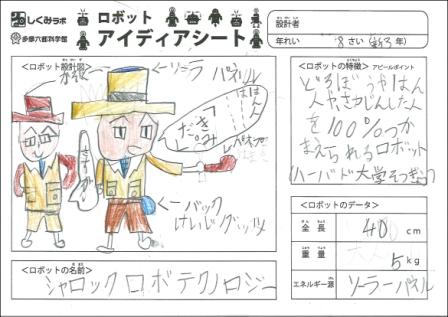 しくみラボ
多摩六都科学館
ロボット
アイディアシート
設計者
年れい 8さい(新3年)
<ロボット設計図>
ソーラーパネル
はん人は
だ
きみ
さすがだ
バック
けいじグッツ
<ロボットの特徴> アピールポイント
どろぼうやはん
人やさがしんした人
を100%つか
まえられるロボット
(ハーバド大学そつぎょう)
<ロボットの名前>
シャロックロボテクノロジー
<ロボットのデータ>
全長 40 cm
重量 5 kg
エネルギー源 ソーラーパネル